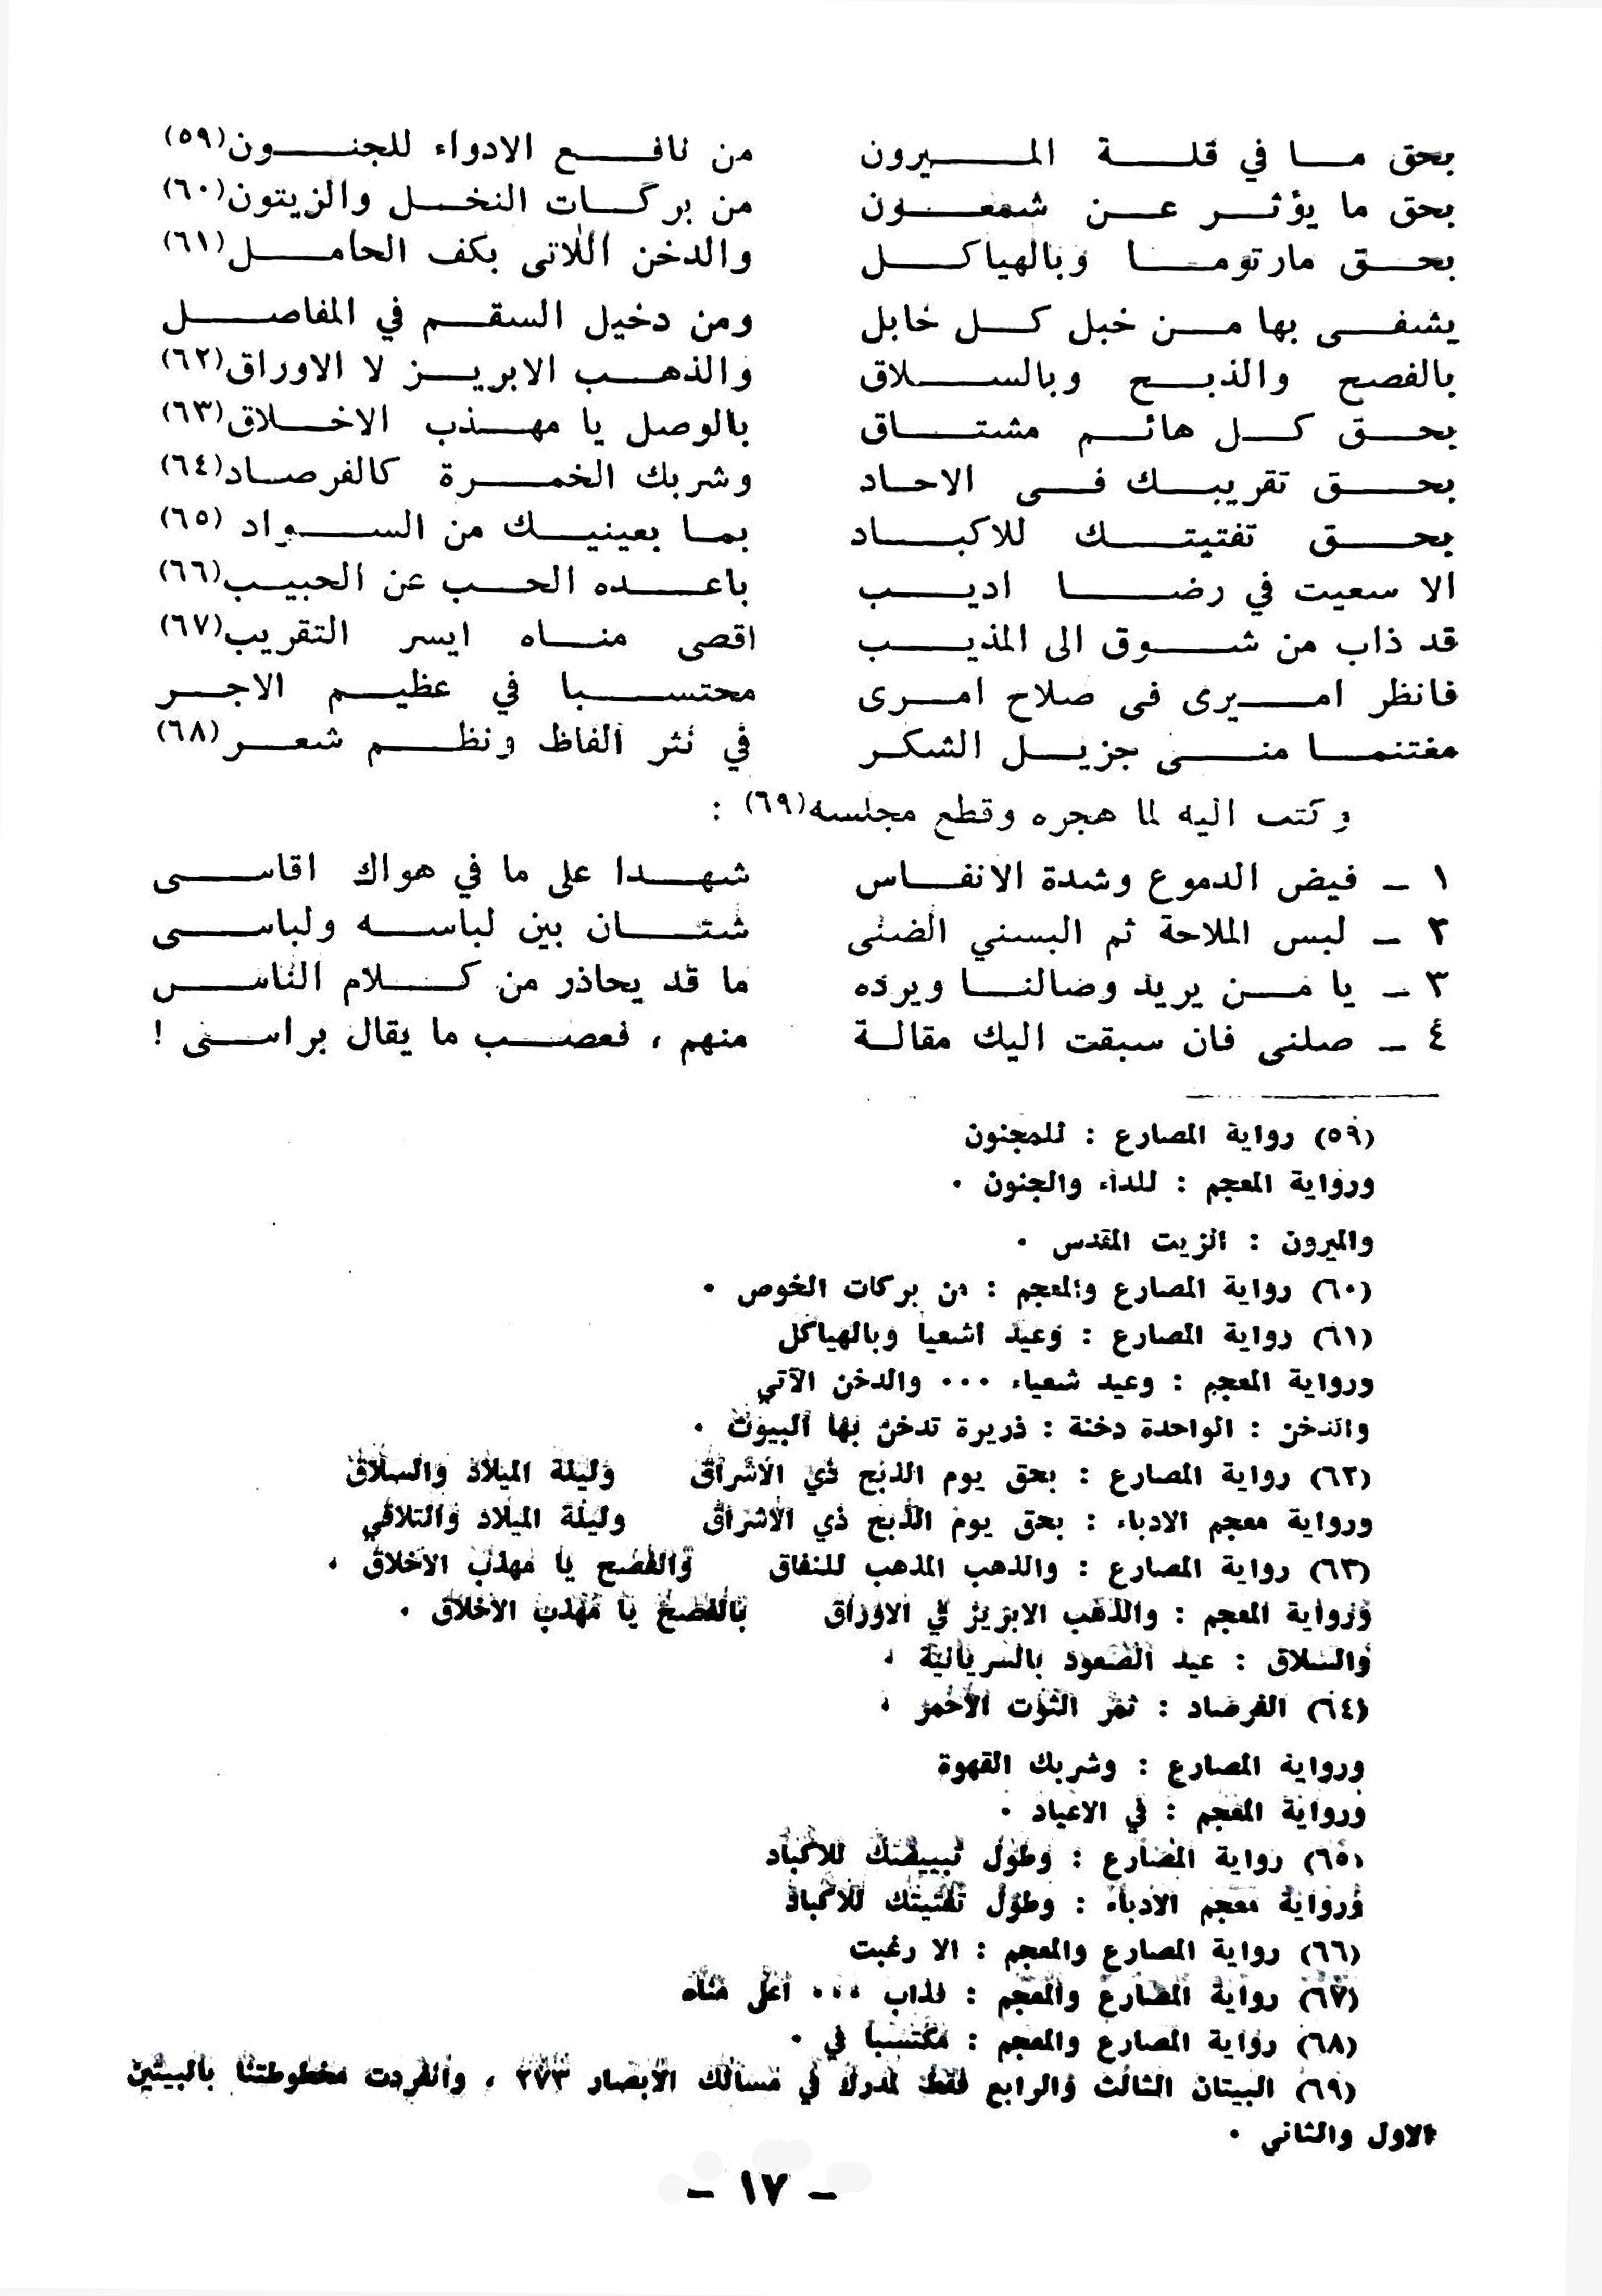 بحق ما في قلة الميرون من نافع الادواء للجنون(٥٩)
بحق ما يؤثر عن شمعون من بركات النخل والزيتون(٦٠)
بحق مارتوما وبالهياكل والدخن اللاتى بكف الحامل(٦١)
يشفى بها من خبل كل خابل ومن دخيل السقم في المفاصل
بالفصح والذبح وبالسلاق والذهب الابريز لا الاوراق(٦٢)
بحق كل هائم مشتاق بالوصل يا مهذب الاخلاق(٦٣)
بحق تقريبك فى الاحاد وشربك الخمرة كالفرصاد(٦٤)
بحق تفتيتك للاكباد بما بعينيك من السواد (٦٥)
الا سعيت في رضا اديب باعده الحب عن الحبيب(٦٦)
قد ذاب من شوق الى المذيب اقصى مناه ايسر التقريب(٦٧)
فانظر اميرى فى صلاح امرى محتسبا في عظيم الاجر
مغتنما منى جزيل الشكر في نثر الفاظ ونظم شعر(٦٨)
وكتب اليه لما هجره وقطع مجلسه(٦٩) :
١ ــ فيض الدموع وشدة الانفاس شهدا على ما في هواك اقاسى
٢ ــ لبس الملاحة ثم البسني الضنى شتان بين لباسه ولباسى
٣ ــ يا من يريد وصالنا ويرده ما قد يحاذر من كلام الناس
٤ ــ صلنى فان سبقت اليك مقالة منهم ، فعصب ما يقال براسى !
(٥٩) رواية المصارع : للمجنون
ورواية المعجم : للداء والجنون .
والميرون : الزيت المقدس .
(٦٠) رواية المصارع والمعجم : من بركات الخوص .
(٦١) رواية المصارع : وعيد اشعيا وبالهياكل
ورواية المعجم : وعيد شعياء ... والدخن الآتي
والدخن : الواحدة دخنة : ذريرة تدخن بها البيوت .
(٦٢) رواية المصارع : بحق يوم الذبح ذي الاشراق وليلة الميلاد والسلاق
ورواية معجم الادباء : بحق يوم الذبح ذي الاشراق وليلة الميلاد والتلاقي
(٦٣) رواية المصارع : والذهب المذهب للنفاق والفصح يا مهذب الاخلاق .
ورواية المعجم : والذهب الابريز في الاوراق بالفصح يا مهذب الاخلاق .
والسلاق : عيد الصعود بالسريانية .
(٦٤) الفرصاد : ثمر التوت الاحمر .
ورواية المصارع : وشربك القهوة
ورواية المعجم : في الاعياد .
(٦٥) رواية المصارع : وطول تبييضك للاكباد
ورواية معجم الادباء : وطول تفتيتك للاكباد
(٦٦) رواية المصارع والمعجم : الا رغبت
(٦٧) رواية المصارع والمعجم : فذاب ... اعلى مناه
(٦٨) رواية المصارع والمعجم : مكتسبا في .
(٦٩) البيتان الثالث والرابع فقط لمدرك في مسالك الابصار ٢٧٣ ، وانفردت مخطوطتنا بالبيتين
الاول والثاني .
ــ ١٧ ــ